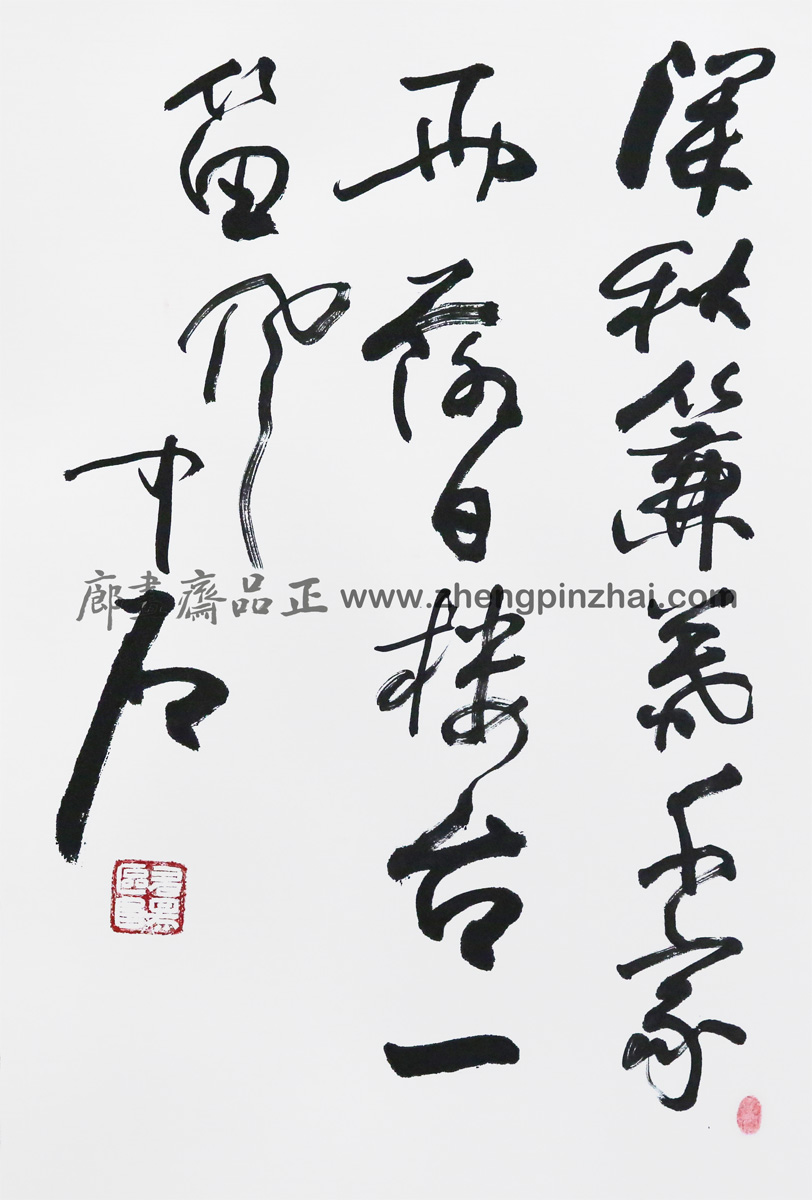 深秋簾幕千家
雨落日樓台一
笛風
中石
正品齋畫廊 www.zhengpinzhai.com